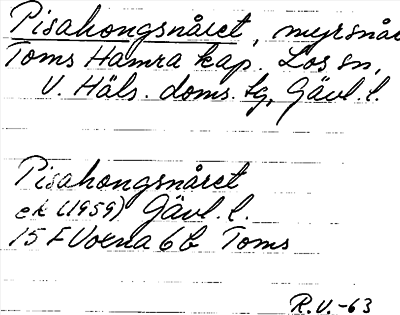 Pisahongsnåret, myrsnår
Toms Hamra kap. Los sn,
V. Häls. doms. tg, Gävl. l.
Pisahongsnåret
ek (1959) Gävl. l.
15 F Voxna 6b Toms
R.V.-63